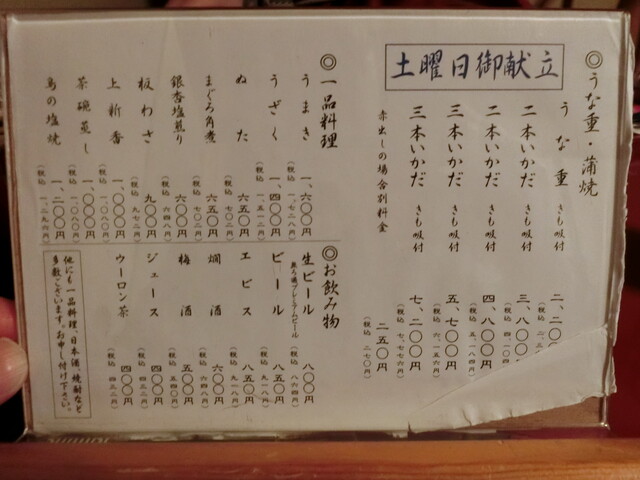 土曜日御献立
◎うな重・蒲焼
うな重 きも吸付
二本いかだ きも吸付 三、八〇〇円
二本いかだ きも吸付 四、八〇〇円 (税込 五、一八四円)
三本いかだ きも吸付 五、七〇〇円 (税込 六、一五六円)
三本いかだ きも吸付 七、二〇〇円 (税込 七、七七六円)
赤出しの場合別料金 二五〇円 (税込 二七〇円)
◎一品料理
うまき 一、六〇〇円 (税込 一、七二八円)
うざく 一、四〇〇円 (税込 一、五一二円)
ぬた 六五〇円 (税込 七〇二円)
まぐろ角煮 六五〇円 (税込 七〇二円)
銀杏塩煎り 六〇〇円 (税込 六四八円)
板わさ 九〇〇円 (税込 九七二円)
上新香 一、〇〇〇円 (税込 一、〇八〇円)
茶碗蒸し 一、〇〇〇円 (税込 一、〇八〇円)
鳥の塩焼 一、二〇〇円 (税込 一、二九六円)
◎お飲み物
生ビール 八〇〇円 (税込 八六四円)
ビール 八五〇円 (税込 九一八円)
ヱビス 八五〇円 (税込 九一八円)
燗酒 六〇〇円 (税込 六四八円)
梅酒 五〇〇円 (税込 五四〇円)
ジュース 四〇〇円 (税込 四三二円)
ウーロン茶 四〇〇円 (税込 四三二円)
他にも一品料理、日本酒、焼酎など
多数ございます。お申し付け下さい。